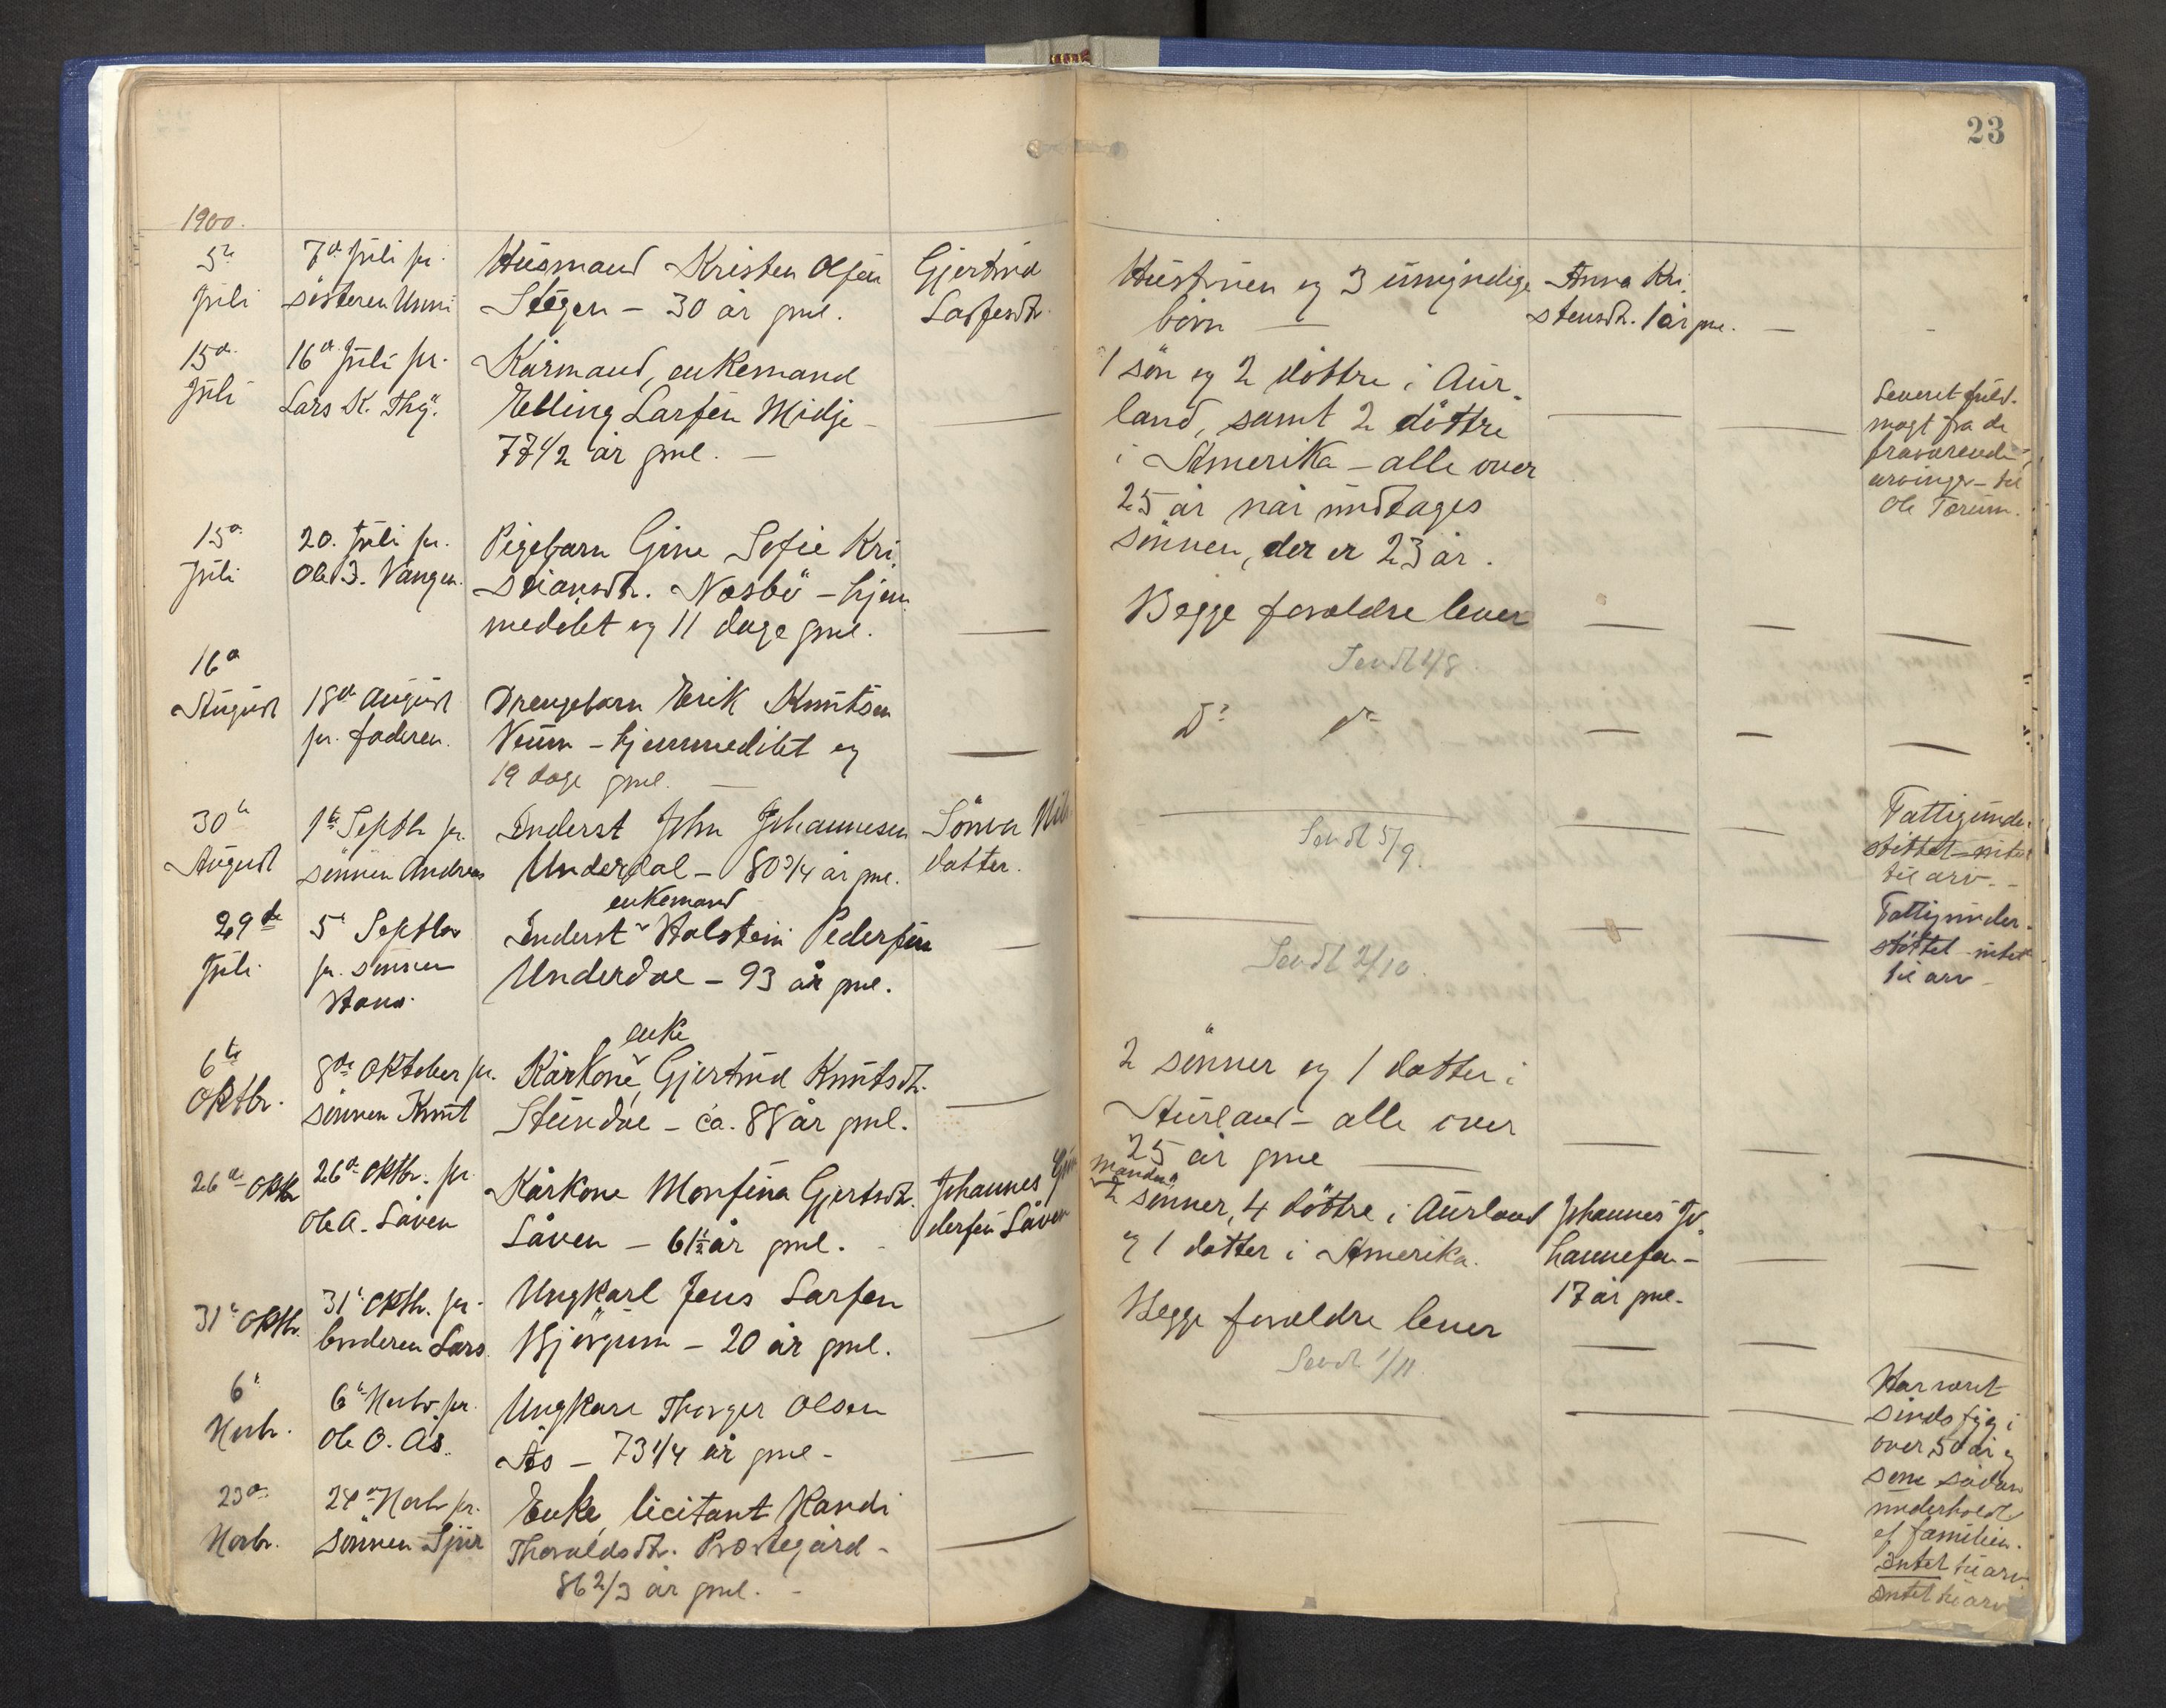 23
1900.
5te
Juli
7de Juli pr.
søsteren Unni
Husmand Kristen Olsen
Stegen – 30 år gml.
Gjertrud
Larsesdtr.
Hustruen og 3 umyndige
børn —
Anna Kri-
stensdtr. 1 år gml.
15de
Juli
16de Juli pr.
Lars K. Thy.
Kårmand, enkemand
Elling Larsen Midje –
77 1/2 år gml. —
1 søn og 2 døttre i Aur-
land, samt 2 døttre
i Amerika – alle over
25 år når undtages
sønnen, der er 23 år.
Leveret fuld-
magt fra de
fraværende
arvinger – til
Ole Terum.
15de
Juli
20. Juli pr.
Ole J. Vangen.
Pigebarn Gine Sofie Kri-
stiansdtr. Næsbø – hjem-
medøbt og 11 dage gml.
Begge forældre lever
Sendt 4/8.
16de
August
18de August
pr. faderen.
Drengebarn Erik Knutsen
Veum – hjemmedøbt og
19 dage gml. —
Do do
30te
August
1ste Septbr pr.
sønnen Andreas
Inderst John Johannesen
Underdal – 80 3/4 år gml.
Sønva Nils
datter.
Sendt 5/9.
Fattigunder-
støttet – intet
til arv. –
29de
Juli
5te Septbr
pr. sønnen
Hans.
enkemand
Inderst Holstein Pedersen
Underdal – 93 år gml.
Sendt 2/10.
Fattigunder-
støttet – intet
til arv –
6te
Oktbr.
8de Oktober pr.
sønnen Knut
enke
Kårkone, Gjertrud Knutsdtr.
Stundal – ca. 88 år gml.
2 sønner og 1 datter i
Aurland – alle over
25 år gml —
26de Oktbr
26de Oktbr. pr.
Ole A. Låven
Kårkone Monsina Gjertsdtr.
Låven – 61 1/2 år gml.
Johannes
dersen Låven
Manden,
2 sønner, 4 døttre i Aurland
og 1 datter i Amerika.
Johannes Jo-
hannesen –
17 år gml.
31te Oktbr.
31te Oktbr. pr.
broderen Lars.
Ungkarl Jens Larsen
Bjørgum – 20 år gml.
Begge forældre lever
Sendt 1/11.
6te
Novbr.
6te Novbr. pr.
Ole O. Ås.
Ungkarl Thorger Olsen
Ås – 73 1/4 år gml –
Har været
sindssyg i
over 50 år og
som sådan
underholdt
af familien.
Intet til arv.
23de
Novbr.
24de Novbr pr.
sønnen Sjur
Enke, licitant Randi
Thoraldsdtr. Prestegård –
86 2/3 år gml. –
Intet til arv